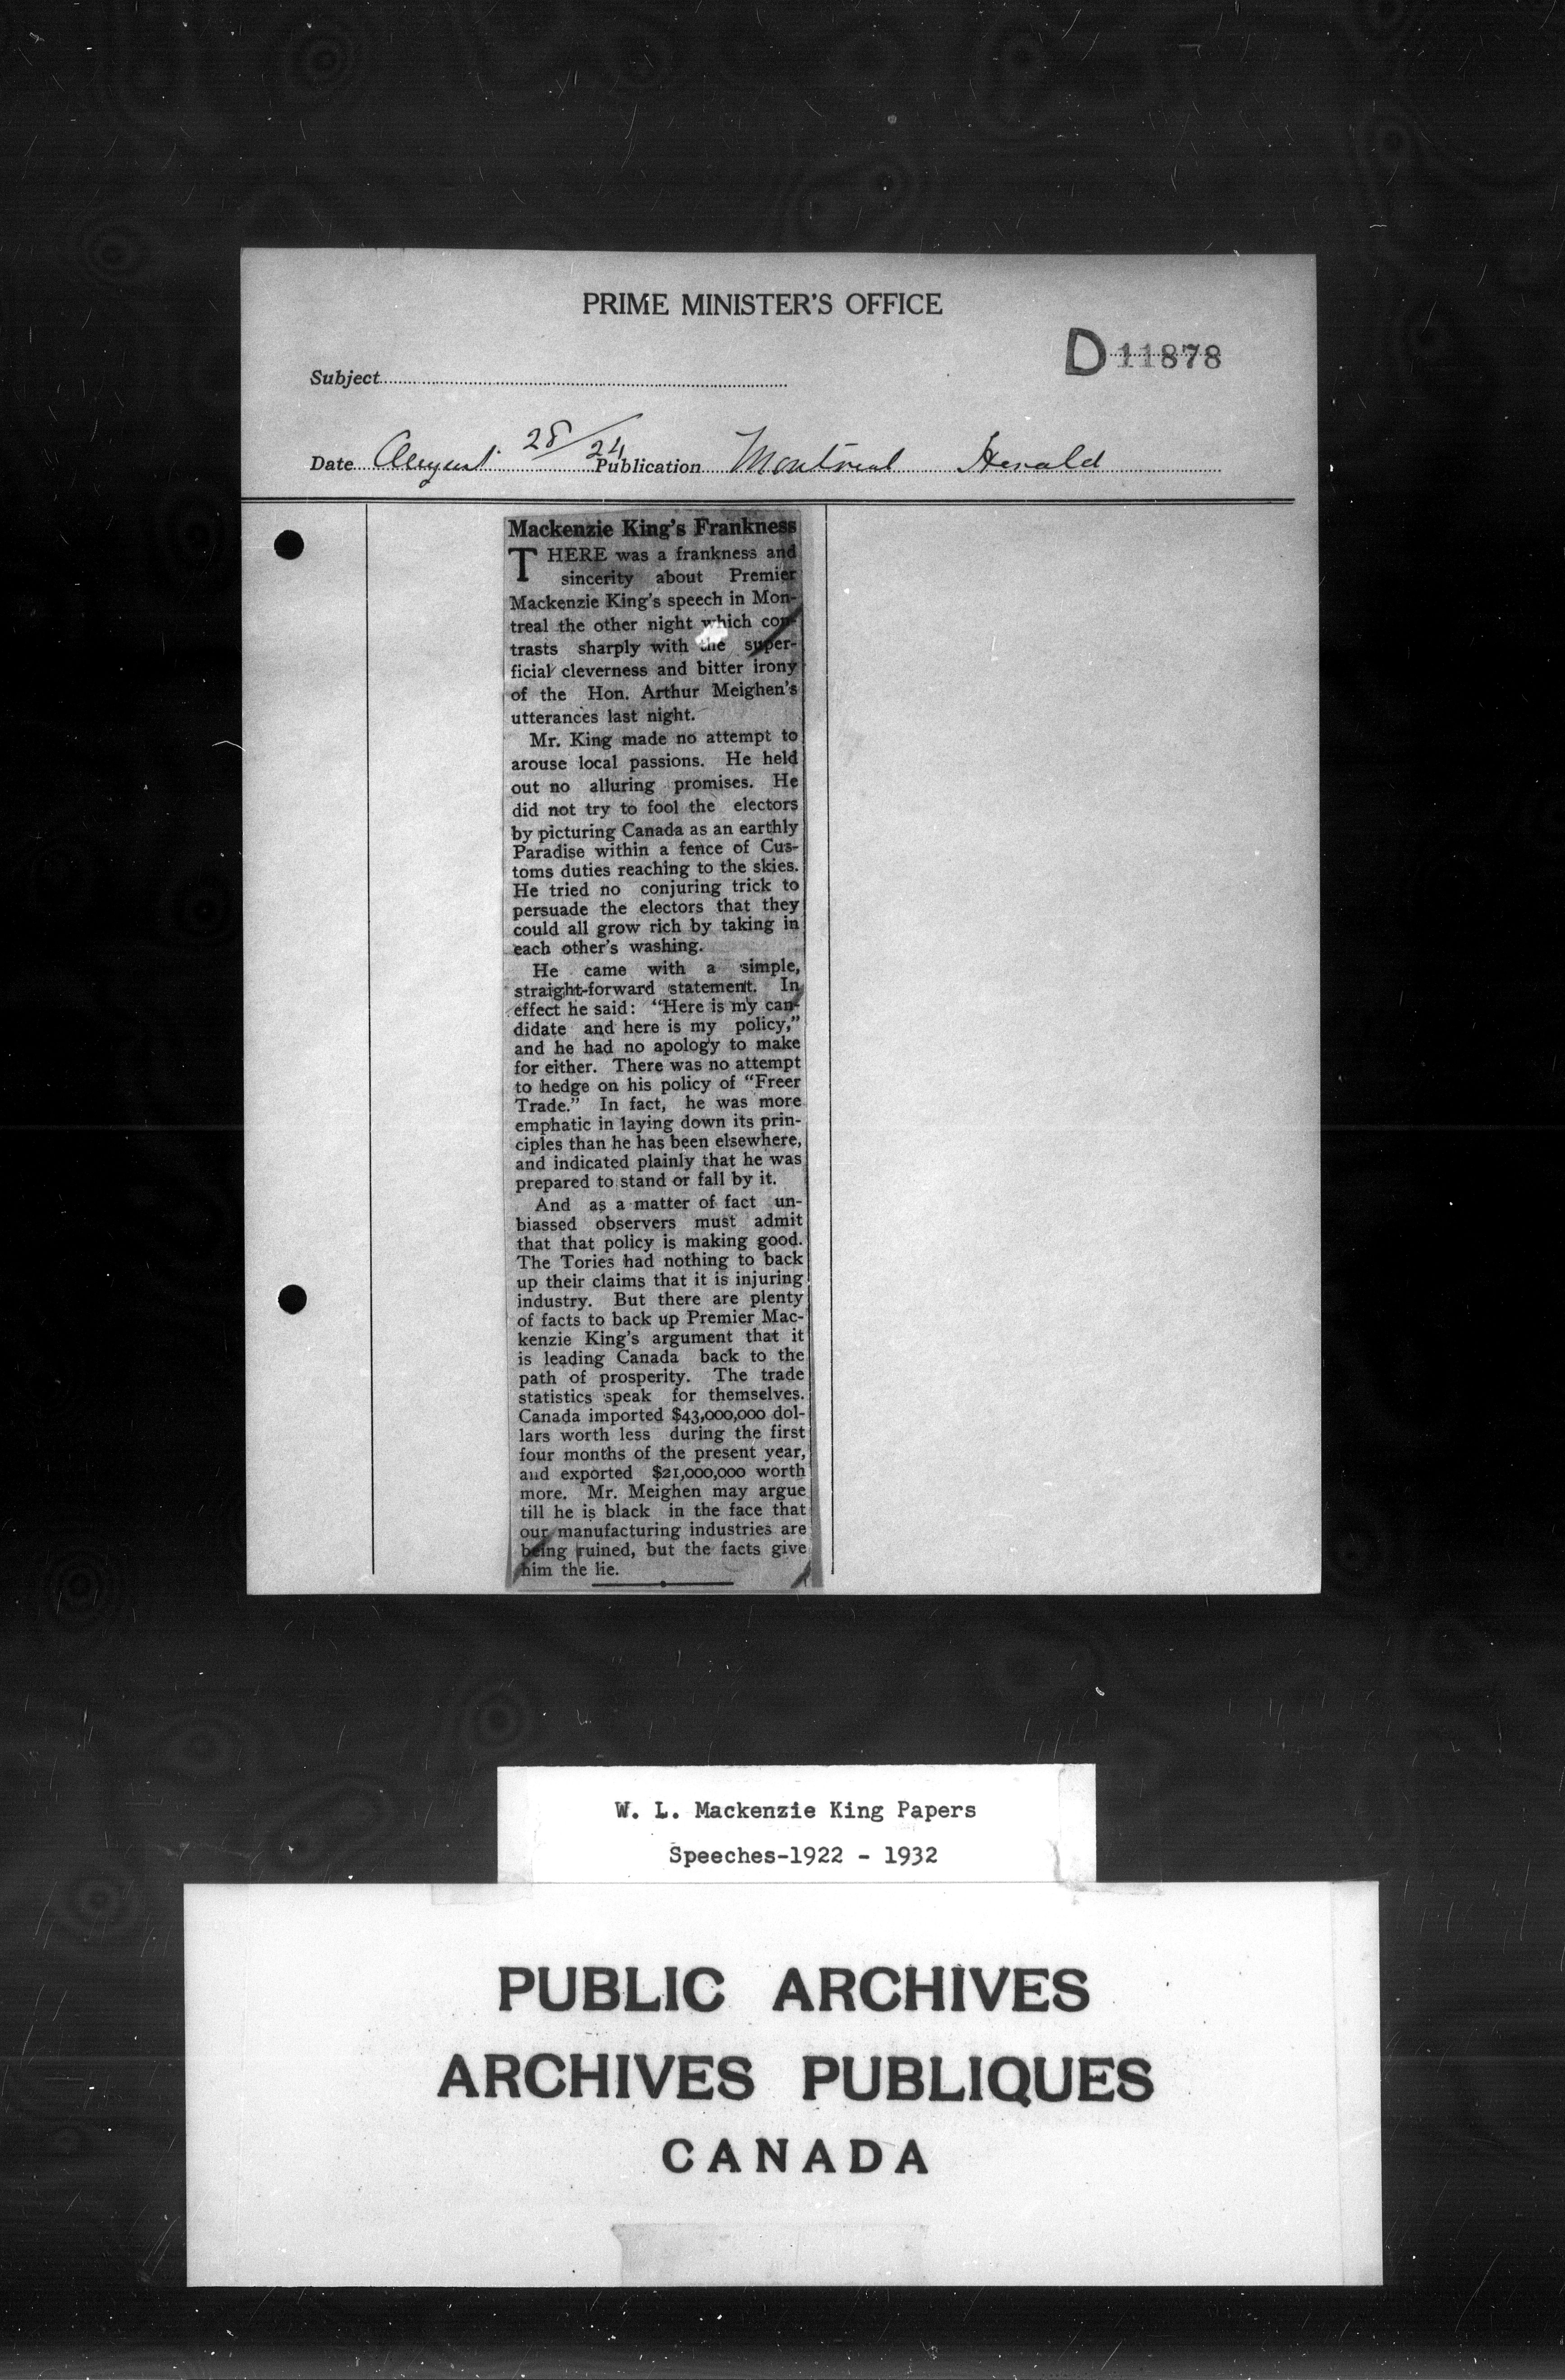 PRIME MINISTER'S OFFICE
D 11878
Subject
Date August 28/24 Publication Montreal Herald
Mackenzie King's Frankness
THERE was a frankness and
sincerity about Premier
Mackenzie King's speech in Mon-
treal the other night which con-
trasts sharply with the super-
ficial cleverness and bitter irony
of the Hon. Arthur Meighen's
utterances last night.
Mr. King made no attempt to
arouse local passions. He held
out no alluring promises. He
did not try to fool the electors
by picturing Canada as an earthly
Paradise within a fence of Cus-
toms duties reaching to the skies.
He tried no conjuring trick to
persuade the electors that they
could all grow rich by taking in
each other's washing.
He came with a simple,
straight-forward statement. In
effect he said: "Here is my can-
didate and here is my policy,"
and he had no apology to make
for either. There was no attempt
to hedge on his policy of "Freer
Trade." In fact, he was more
emphatic in laying down its prin-
ciples than he has been elsewhere,
and indicated plainly that he was
prepared to stand or fall by it.
And as a matter of fact un-
biassed observers must admit
that that policy is making good.
The Tories had nothing to back
up their claims that it is injuring
industry. But there are plenty
of facts to back up Premier Mac-
kenzie King's argument that it
is leading Canada back to the
path of prosperity. The trade
statistics speak for themselves.
Canada imported $43,000,000 dol-
lars worth less during the first
four months of the present year,
and exported $21,000,000 worth
more. Mr. Meighen may argue
till he is black in the face that
our manufacturing industries are
being ruined, but the facts give
him the lie.
W. L. Mackenzie King Papers
Speeches-1922 - 1932
PUBLIC ARCHIVES
ARCHIVES PUBLIQUES
CANADA